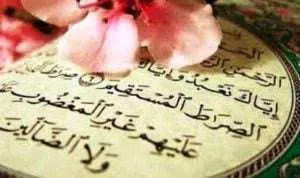 الرَّحْمَٰنِ
إِيَّاكَ نَعْبُدُ وَإِيَّاكَ
الصِّرَاطَ الْمُسْتَقِيمَ ٦ صِرَاطَ
عَلَيْهِمْ غَيْرِ الْمَغْضُوبِ
وَلَا الضَّالِّينَ